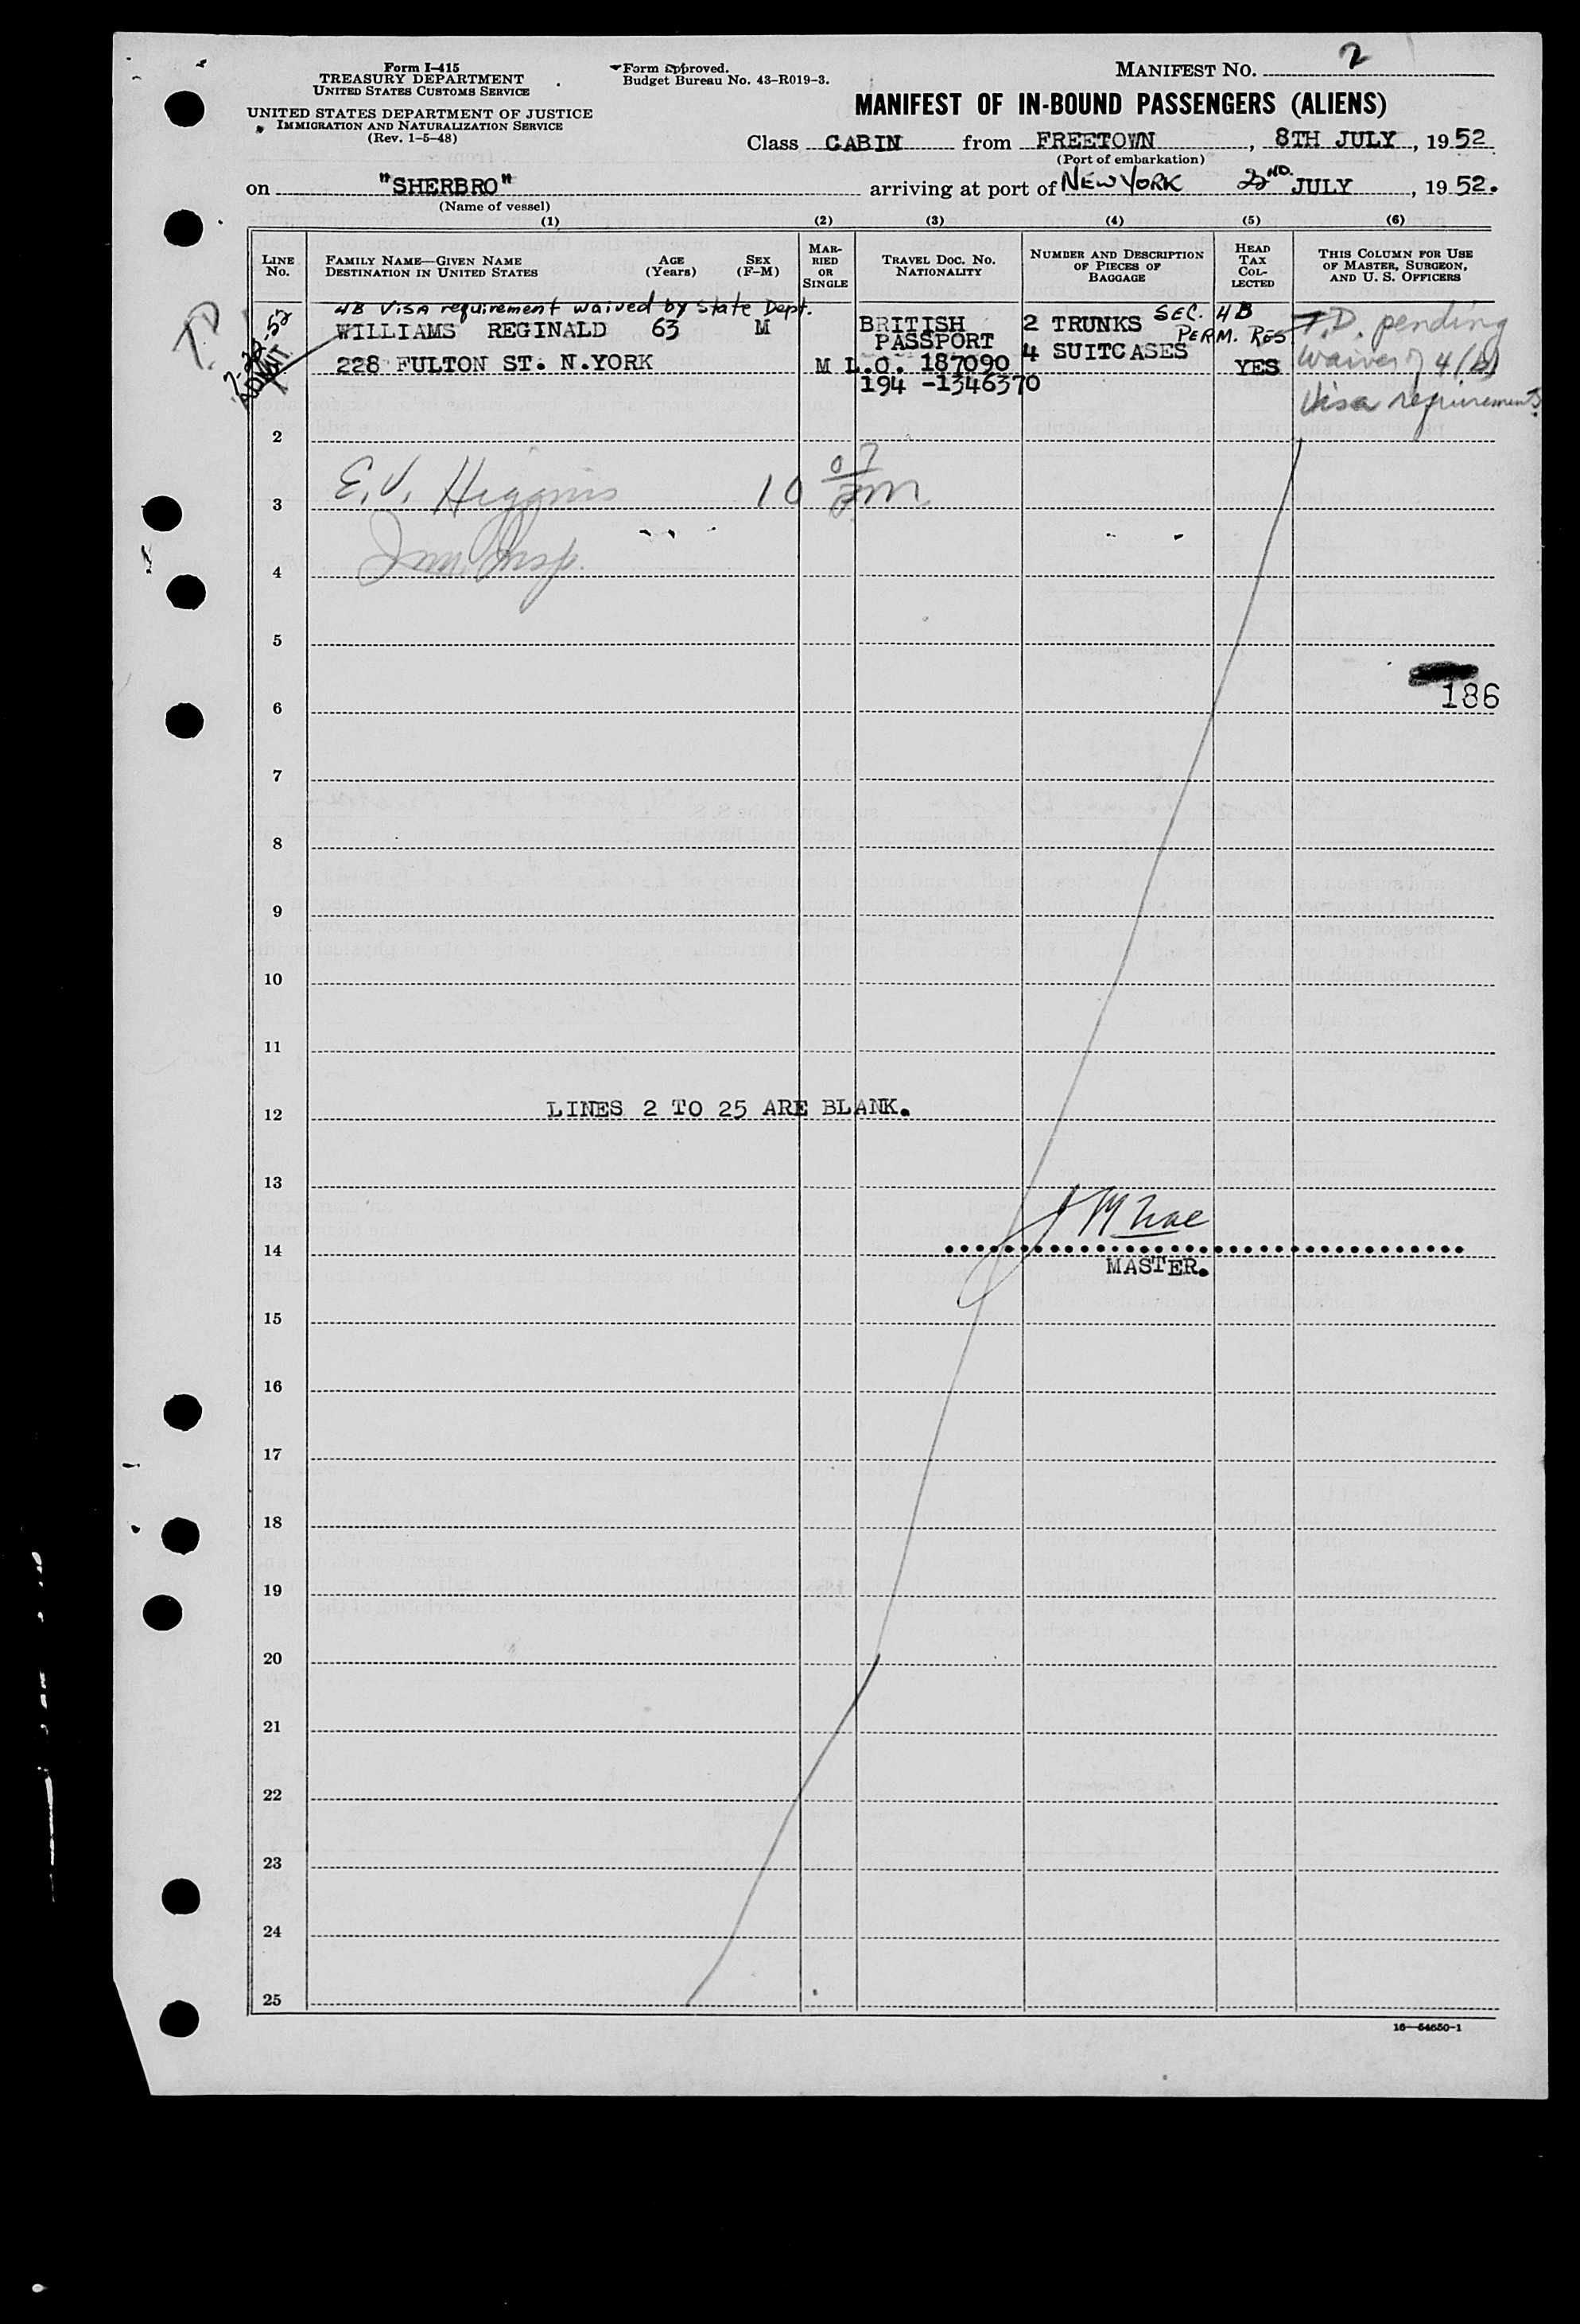 Form I-415
TREASURY DEPARTMENT
UNITED STATES CUSTOMS SERVICE
UNITED STATES DEPARTMENT OF JUSTICE
IMMIGRATION AND NATURALIZATION SERVICE
(Rev. 1-5-48)
Form approved.
Budget Bureau No. 43-R019-3.
MANIFEST NO. 2
MANIFEST OF IN-BOUND PASSENGERS (ALIENS)
Class CABIN from FREETOWN, 8TH JULY, 1952
(Port of embarkation)
on "SHERBRO" arriving at port of NEW YORK 22ND. JULY, 1952.
(Name of vessel)
(1) (2) (3) (4) (5) (6)
LINE No.
FAMILY NAME—GIVEN NAME
DESTINATION IN UNITED STATES
AGE (Years)
SEX (F-M)
MARRIED OR SINGLE
TRAVEL DOC. NO.
NATIONALITY
NUMBER AND DESCRIPTION OF PIECES OF BAGGAGE
HEAD TAX COLLECTED
THIS COLUMN FOR USE OF MASTER, SURGEON, AND U. S. OFFICERS
T.D.
7-22-52
ADMIT
4B Visa requirement waived by State Dept.
WILLIAMS REGINALD 63 M
228 FULTON ST. N.YORK
M
BRITISH
PASSPORT
L.O. 187090
194 -1346370
2 TRUNKS
4 SUITCASES
SEC. 4B
PERM. RES
YES
T.D. pending
waiver of 4(b)
Visa requirements.
2
E.V. Higgins
3
Imm. Insp.
4
5
186
6
7
8
9
10
11
LINES 2 TO 25 ARE BLANK.
12
13
14
MASTER.
15
16
17
18
19
20
21
22
23
24
25
16—54650-1